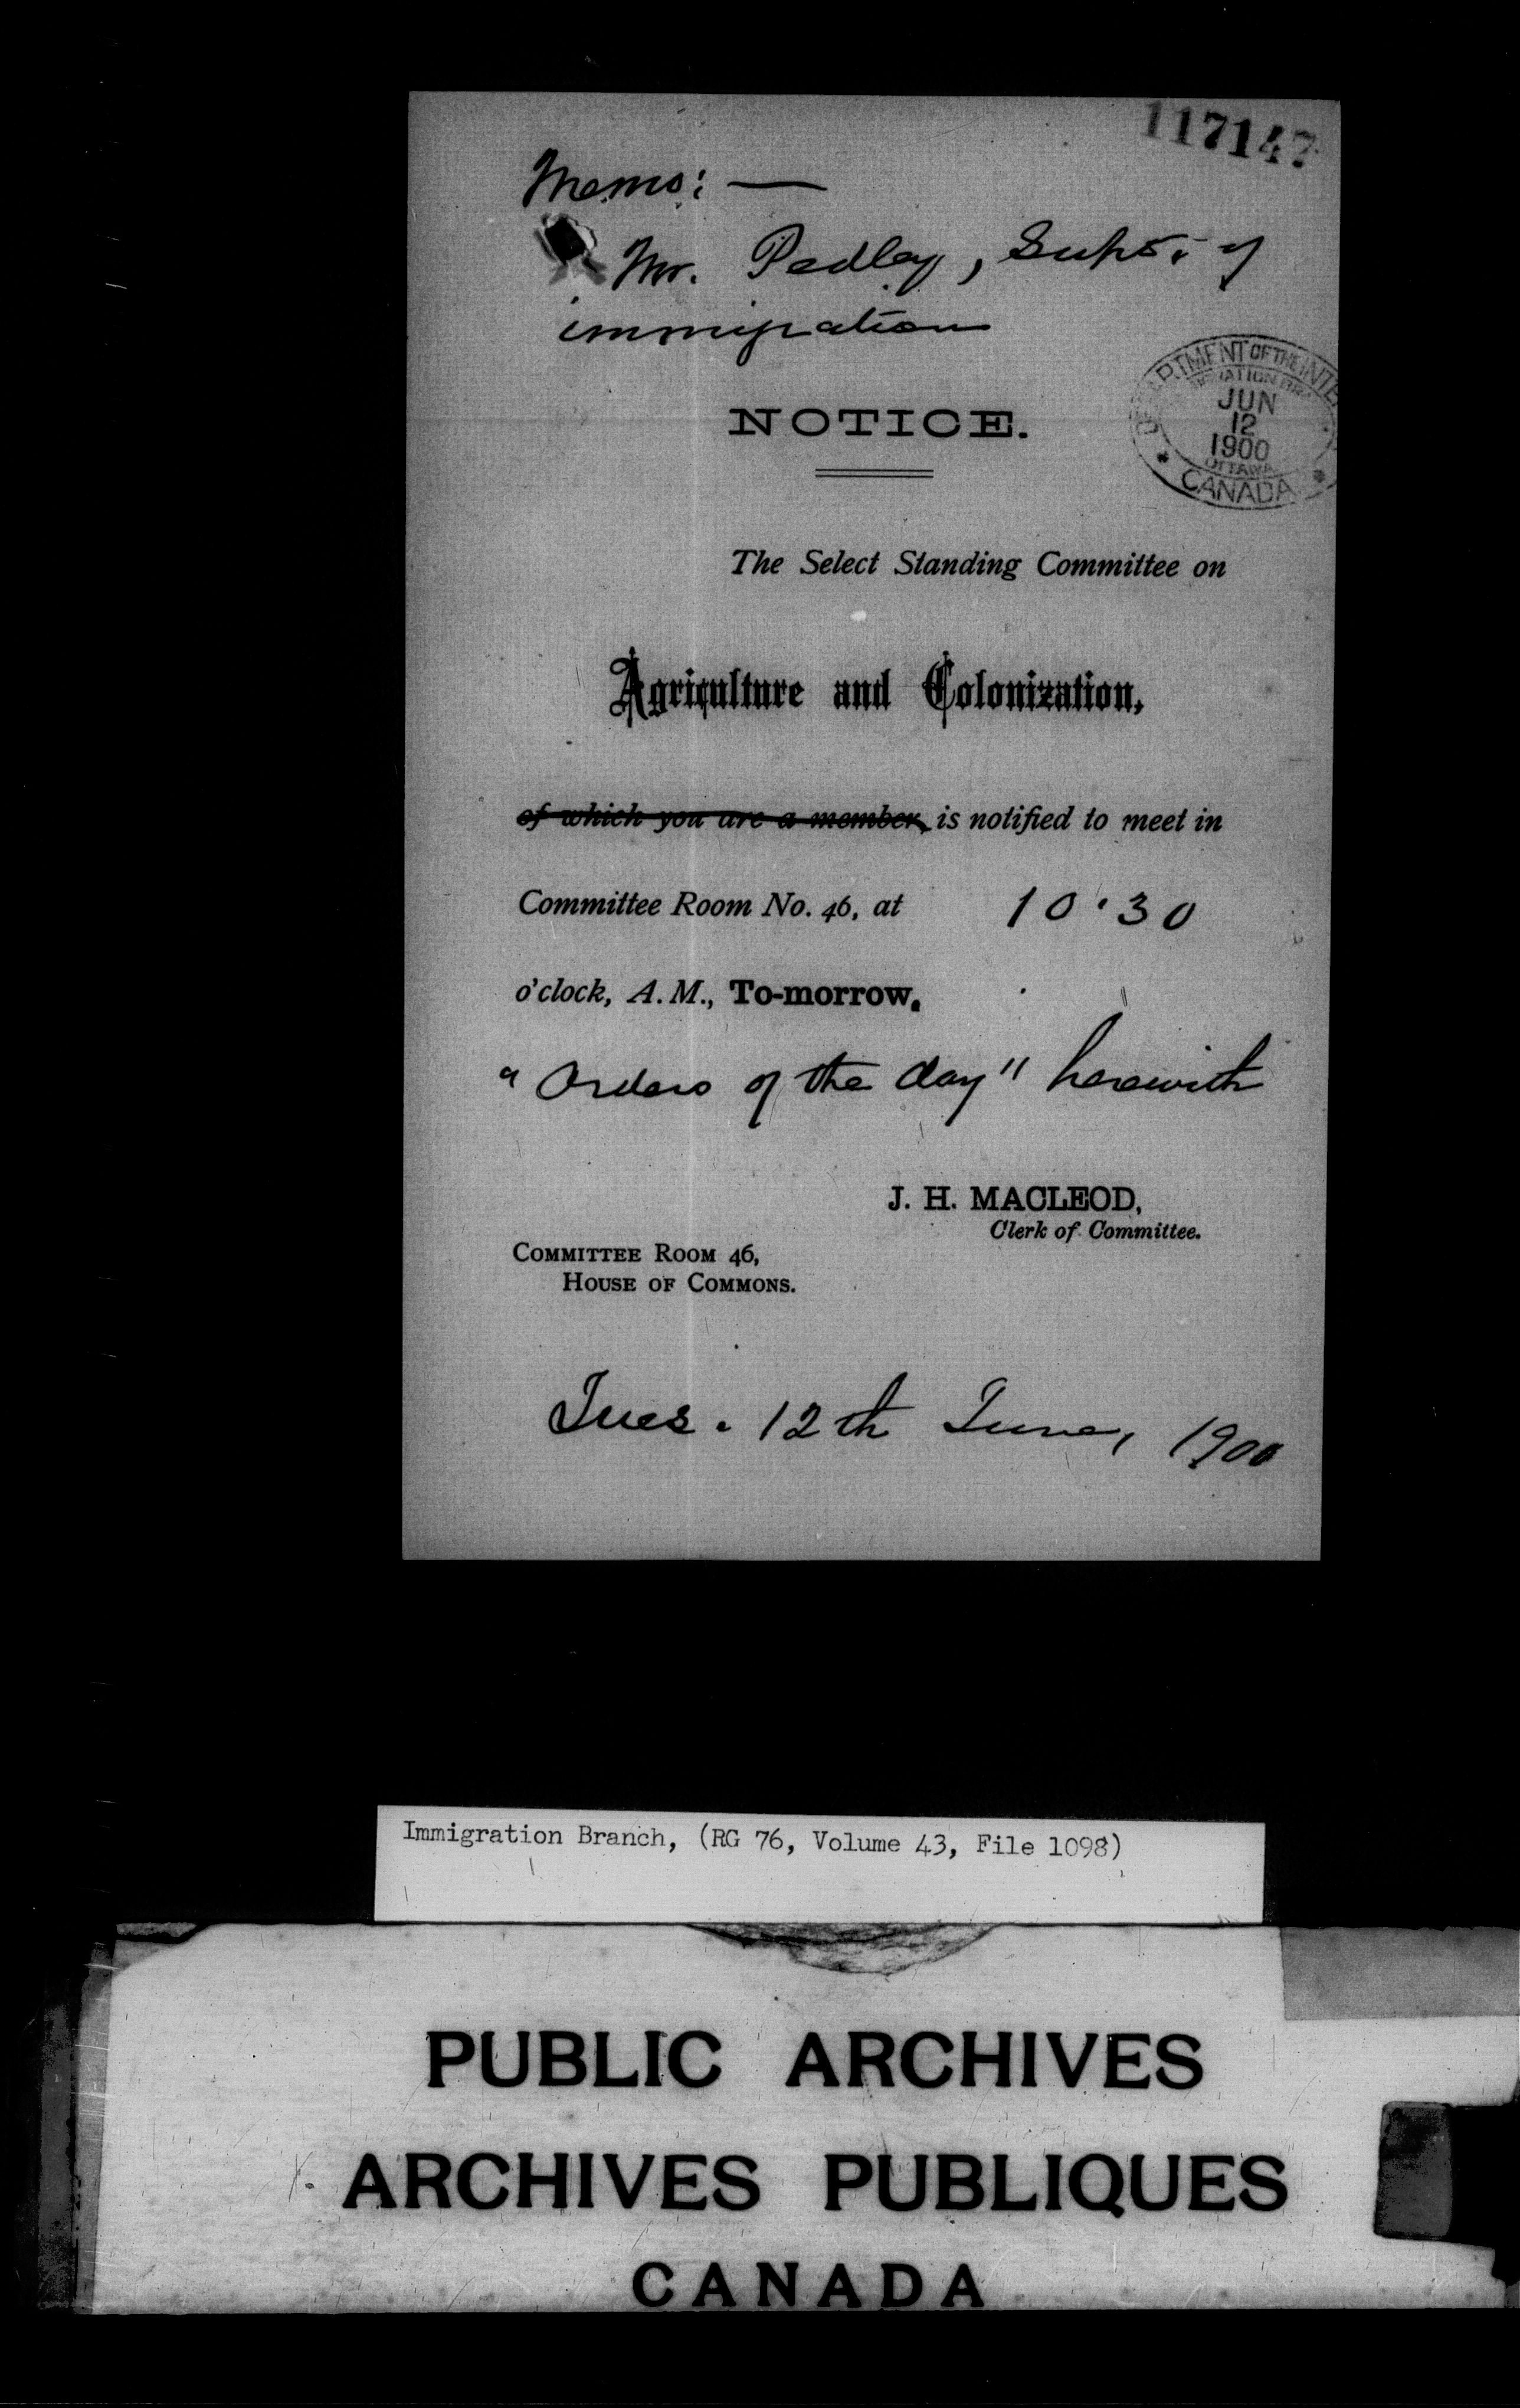 117147
Memo: —
Mr. Pedley, Supt. of
immigration
DEPARTMENT OF THE INTE
JUN
12
1900
OTTAWA
CANADA
NOTICE.
The Select Standing Committee on
Agriculture and Colonization,
of which you are a member, is notified to meet in
Committee Room No. 46, at 10.30
o'clock, A.M., To-morrow.
"Orders of the day" herewith
J. H. MACLEOD,
Clerk of Committee.
COMMITTEE ROOM 46,
HOUSE OF COMMONS.
Tues. 12th June, 1900
Immigration Branch, (RG 76, Volume 43, File 1098)
PUBLIC ARCHIVES
ARCHIVES PUBLIQUES
CANADA